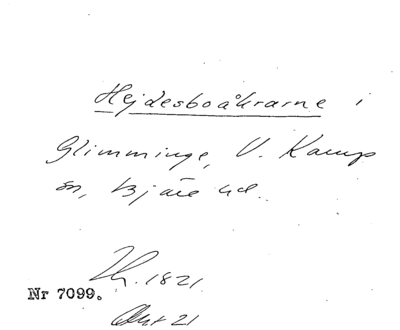 Hejdesboåkrarne i
Glimminge, V. Karup
sn, Bjäre hd.
1821.
Nr 7099.
Akt 21